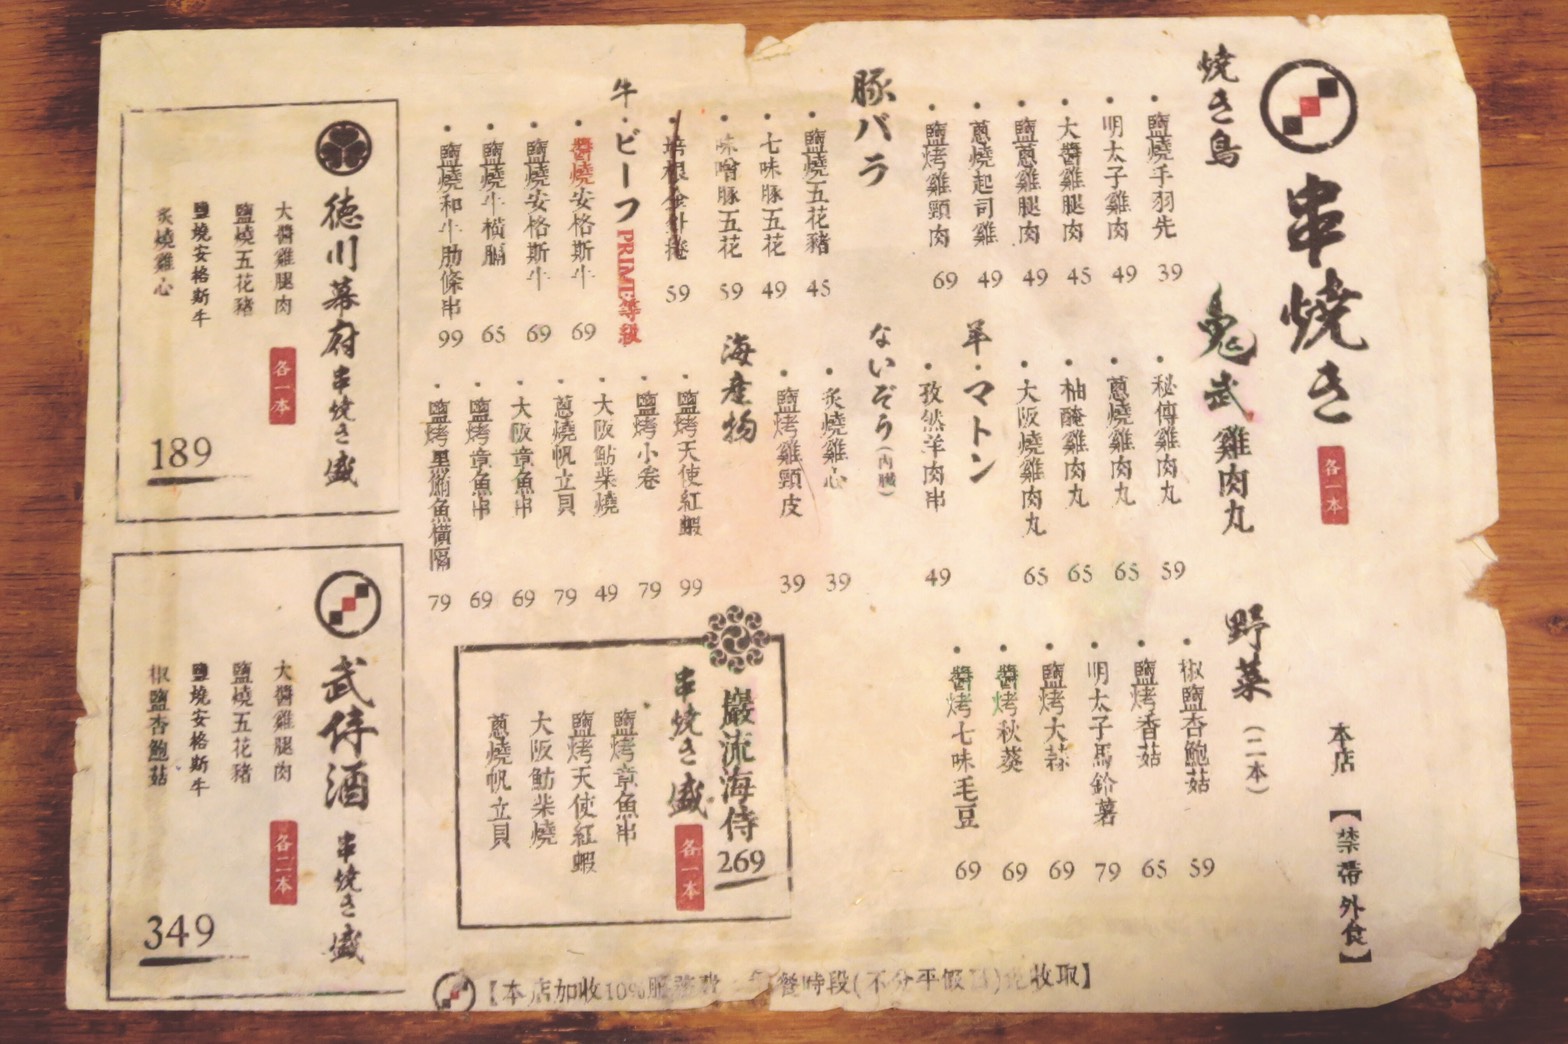 串焼き 各一本
本店【禁帶外食】
焼き鳥
・鹽燒手羽先 39
・明太子雞肉 49
・大醬雞腿肉 45
・鹽蔥雞腿肉 49
・蔥燒起司雞 49
・鹽烤雞頸肉 69
鬼武雞肉丸
・秘傳雞肉丸 59
・蔥燒雞肉丸 65
・柚醃雞肉丸 65
・大阪燒雞肉丸 65
野菜(二本)
・椒鹽杏鮑菇 59
・鹽烤香菇 65
・明太子馬鈴薯 79
・鹽烤大蒜 69
・醬烤秋葵 69
・醬烤七味毛豆 69
豚バラ
・鹽燒五花豬 45
・七味豚五花 49
・味噌豚五花 59
59
羊・マトン
・孜然羊肉串 49
ないぞう(内臓)
・炙燒雞心 39
・鹽烤雞頸皮 39
牛・ビーフ PRIME等級
・醬燒安格斯牛 69
・鹽燒安格斯牛 69
・鹽燒牛橫膈 65
・鹽燒和牛肋條串 99
海産物
・鹽烤天使紅蝦 99
・鹽烤小卷 79
・大阪鮎柴燒 49
・蔥燒帆立貝 79
・大阪章魚串 69
・鹽烤章魚串 69
・鹽烤黑鮪魚橫膈 79
巖流海侍 269
串焼き盛 各一本
鹽烤章魚串
鹽烤天使紅蝦
大阪魴柴燒
蔥燒帆立貝
徳川幕府 串焼き盛
大醬雞腿肉 各一本
鹽燒五花豬
鹽燒安格斯牛
炙燒雞心
189
武侍酒 串焼き盛
大醬雞腿肉 各二本
鹽燒五花豬
鹽燒安格斯牛
椒鹽杏鮑菇
349
【本店加收10%服務費 餐時段(不分平假日)收取】